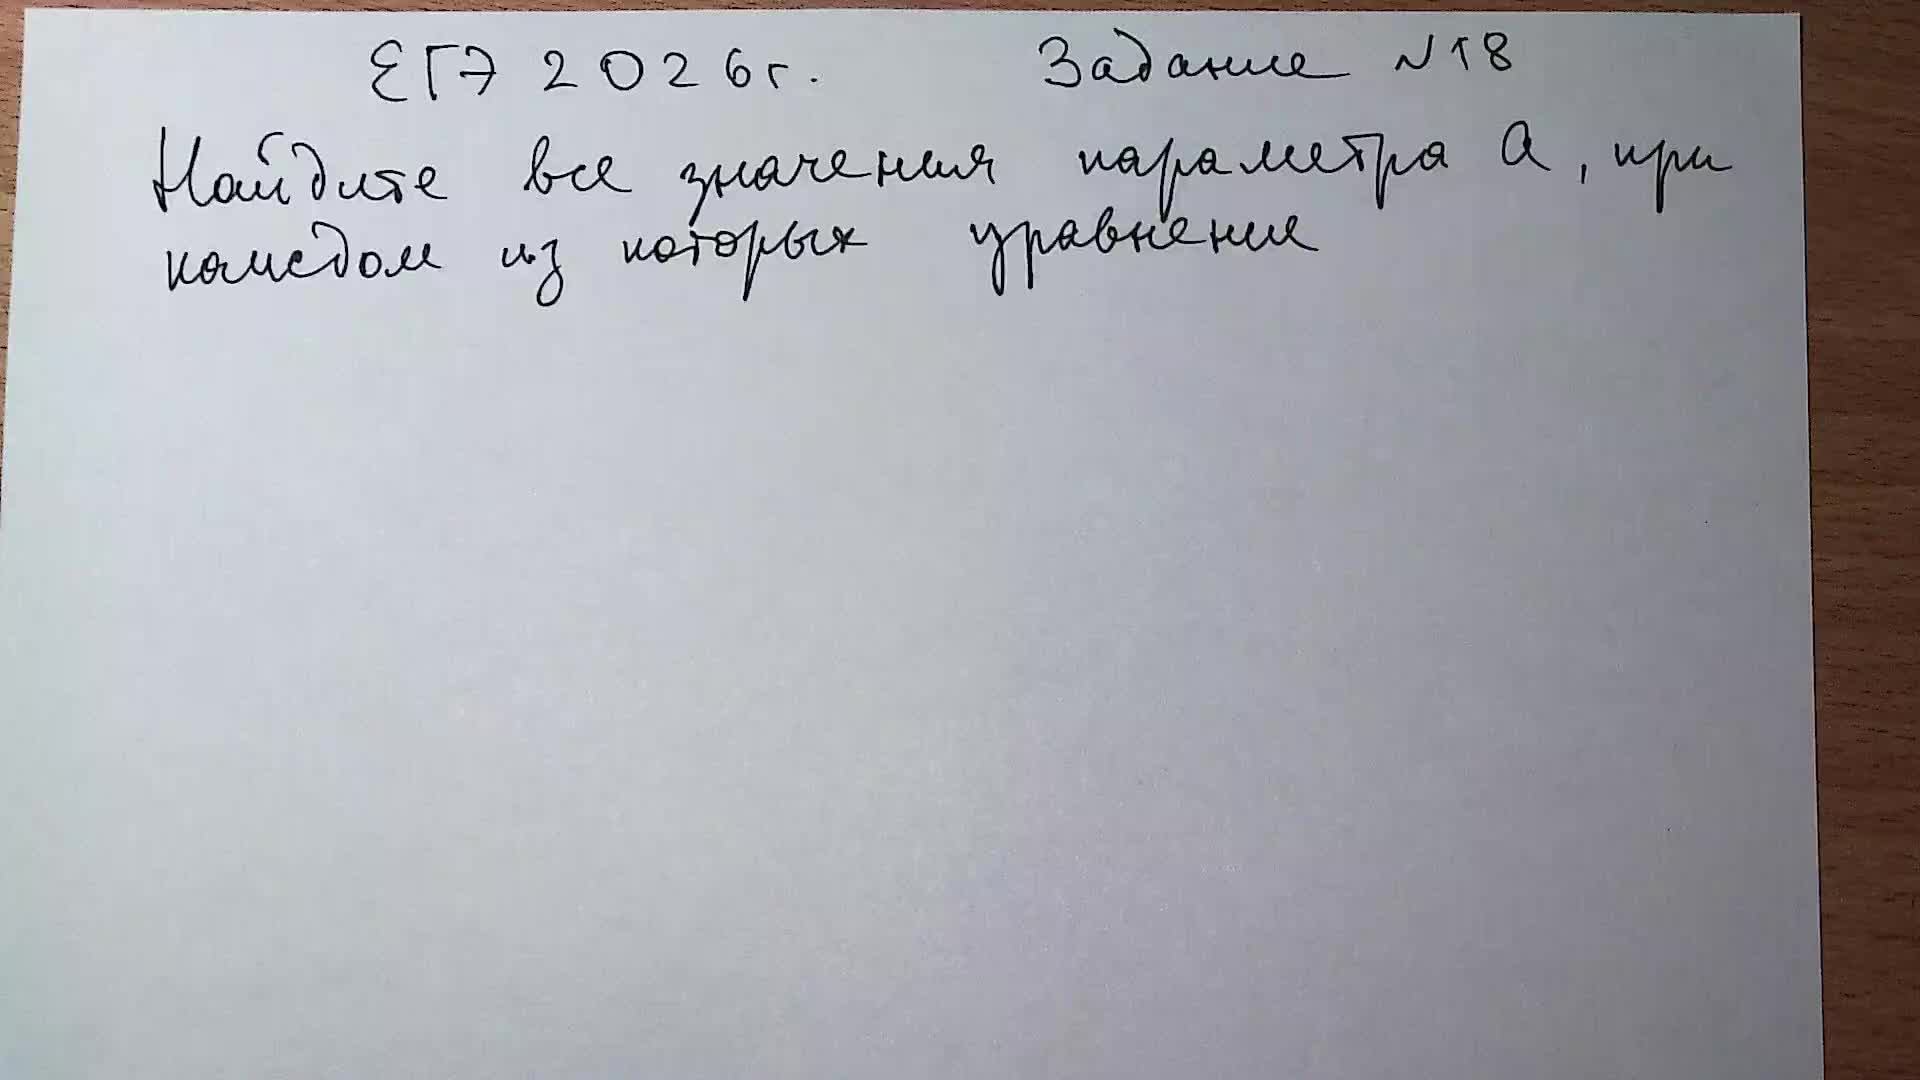 ЕГЭ 2026г. Задание N18
Найдите все значения параметра а, при
каждом из которых уравнение